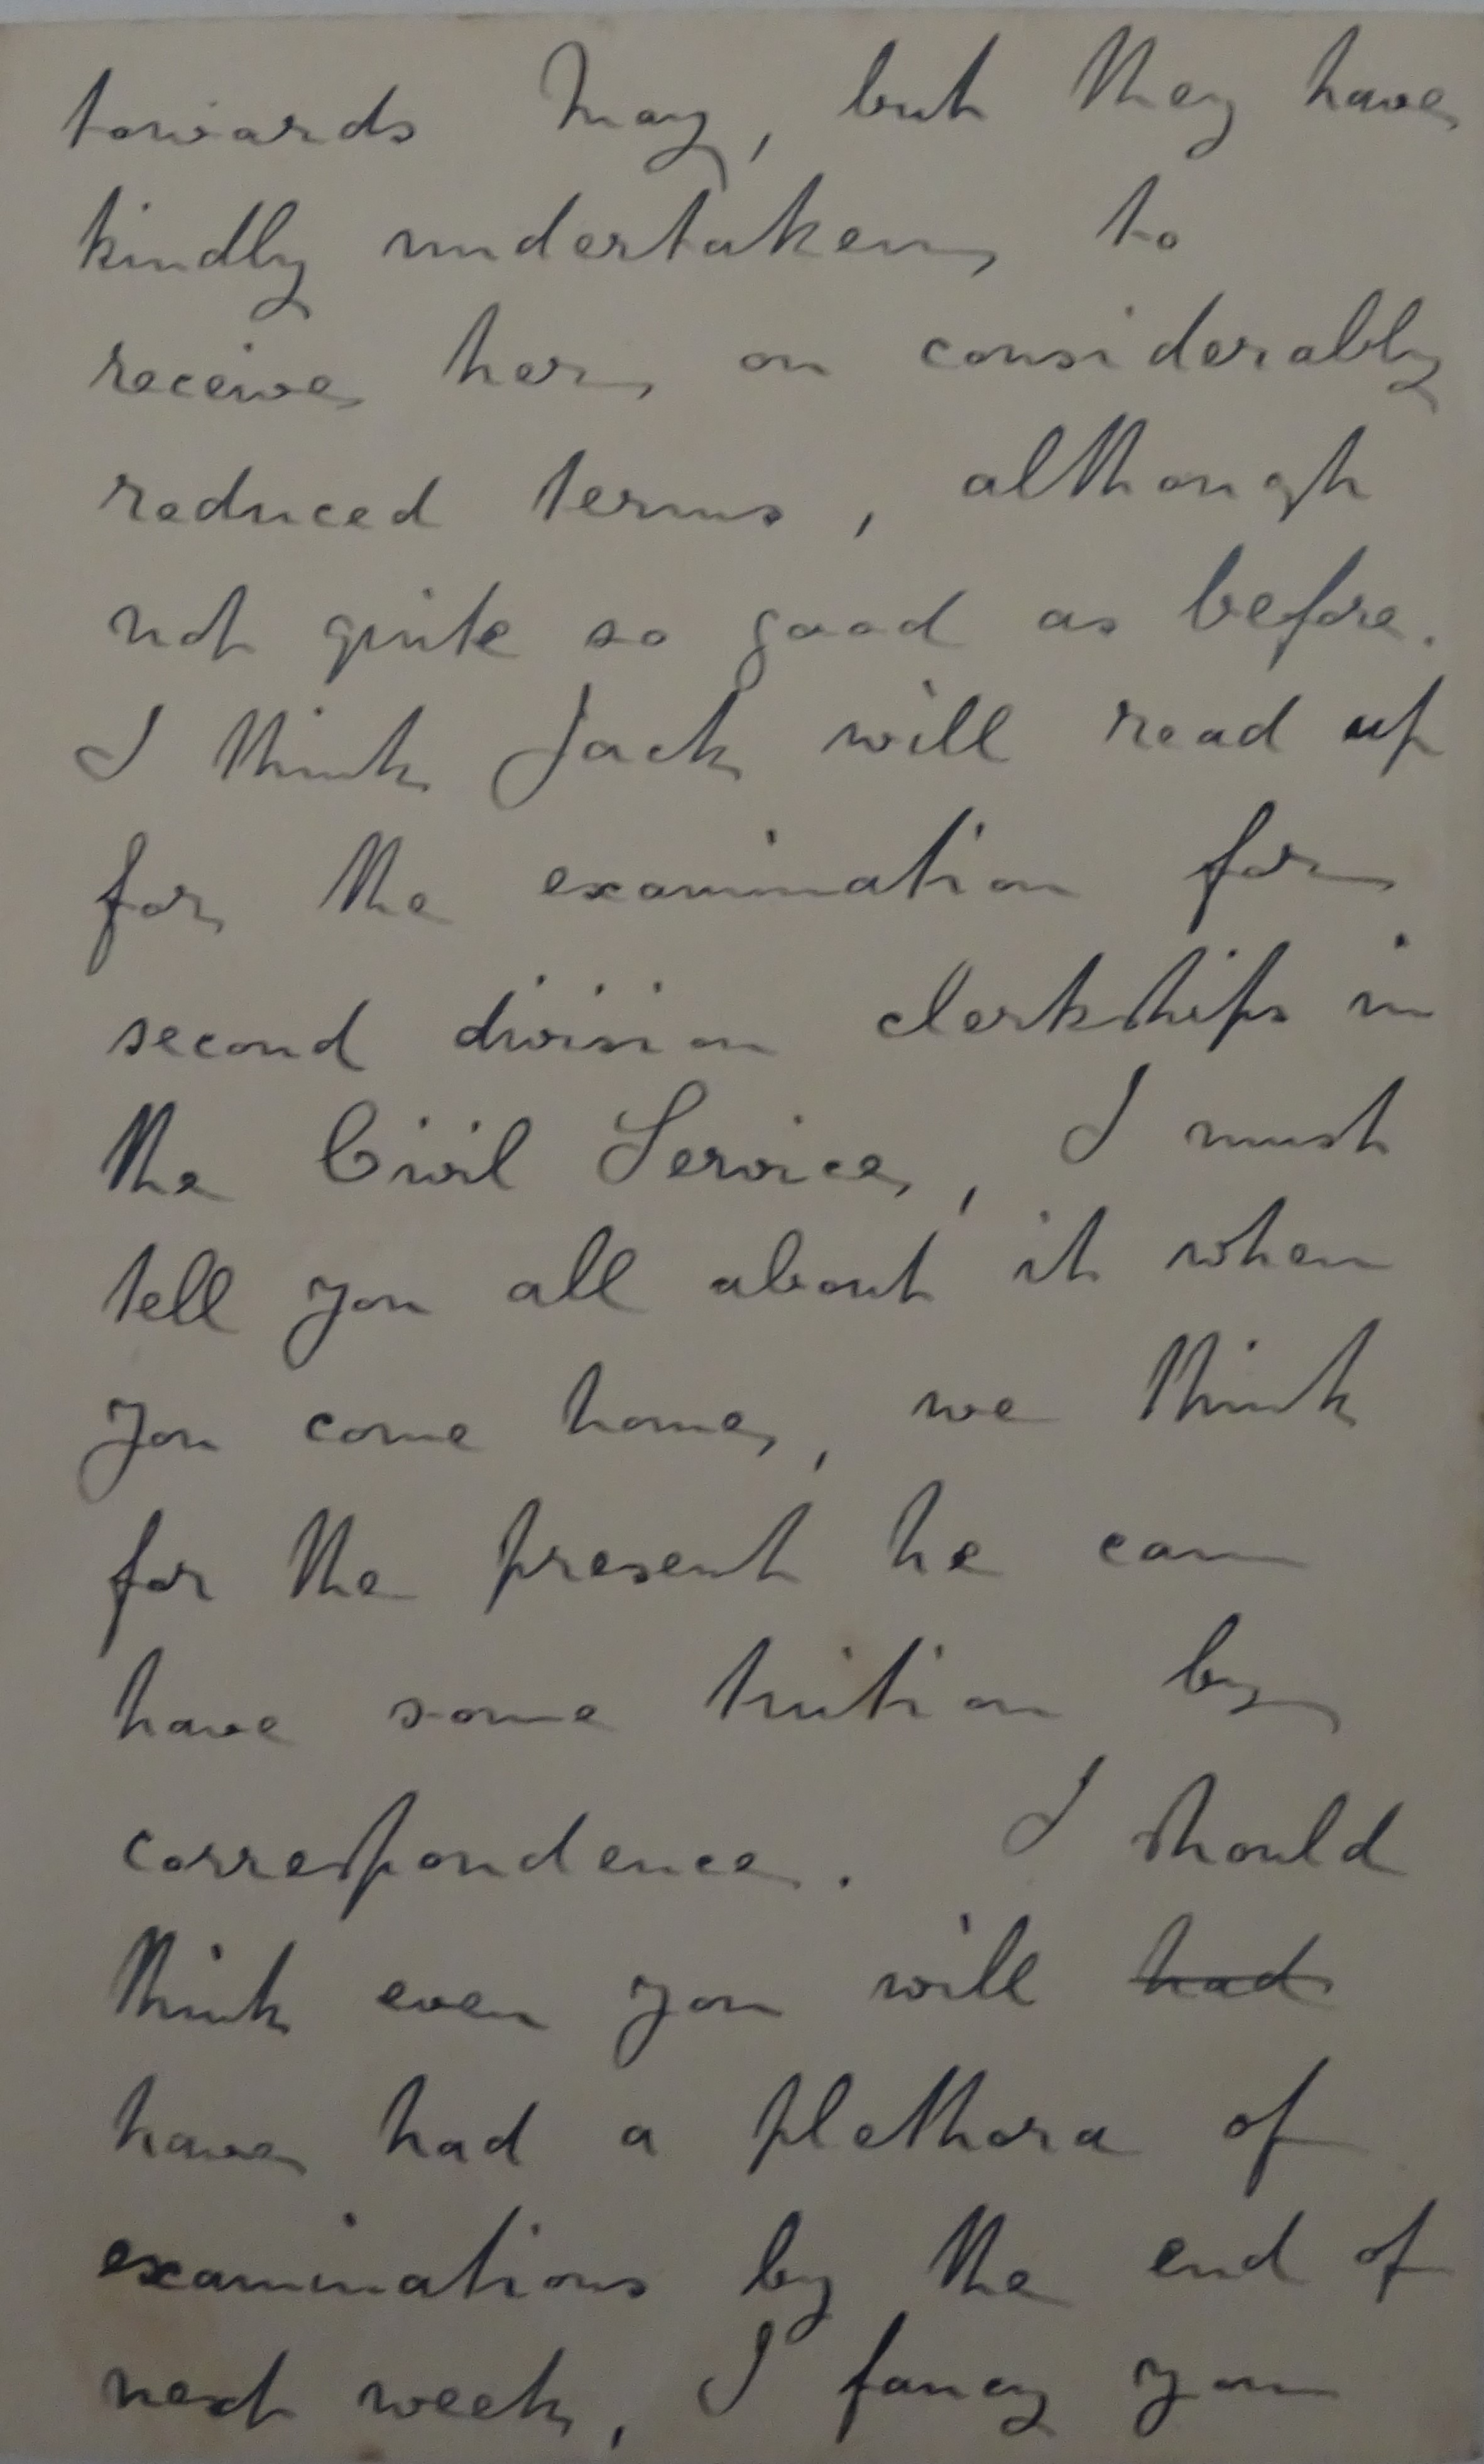 towards May, but they have
kindly undertaken to
receive her on considerably
reduced terms, although
not quite so good as before.
I think Jack will read up
for the examination for
second division clerkships in
the Civil Service, I must
tell you all about it when
you come home, we think
for the present he can
have some tuition by
correspondence. I should
think even you will had
have had a plethora of
examinations by the end of
next week, I fancy you